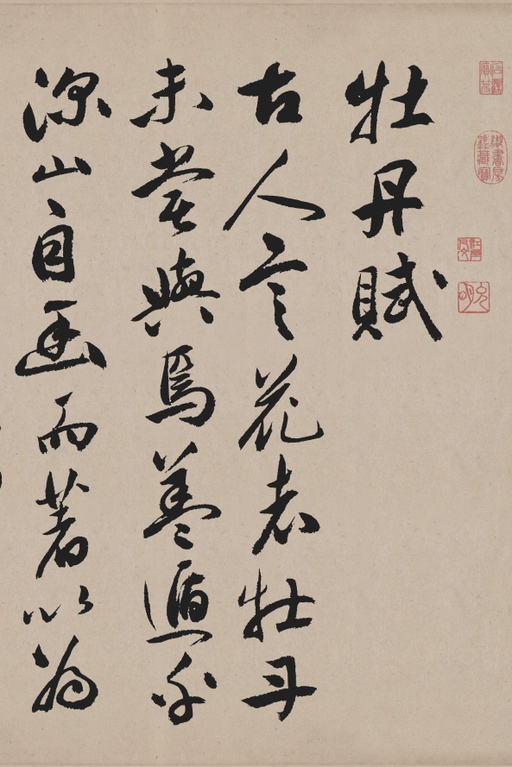 牡丹賦
古人言花者牡丹
未嘗與焉蓋遁乎
深山自幽而著以為
允明